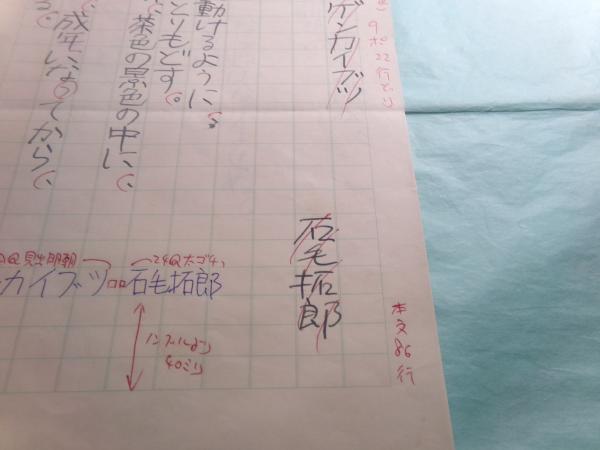 9ポ22行どり
ゲンカイブツ
石毛拓郎
動けるように。
とりもどす。
茶色の景色の中に、
成年になってから、
Q見出明朝
24Q太ゴチ
カイブツ□□石毛拓郎
ノンブルより
40ミリ
本文86行